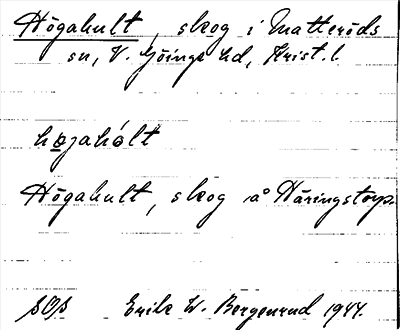 Högahult, skog i Matteröds
sn, V. Göinge hd, Krist. l.
høgahólt
Högahult, skog å Häringstorp.
SOS Erik W. Bergenrud 1944.